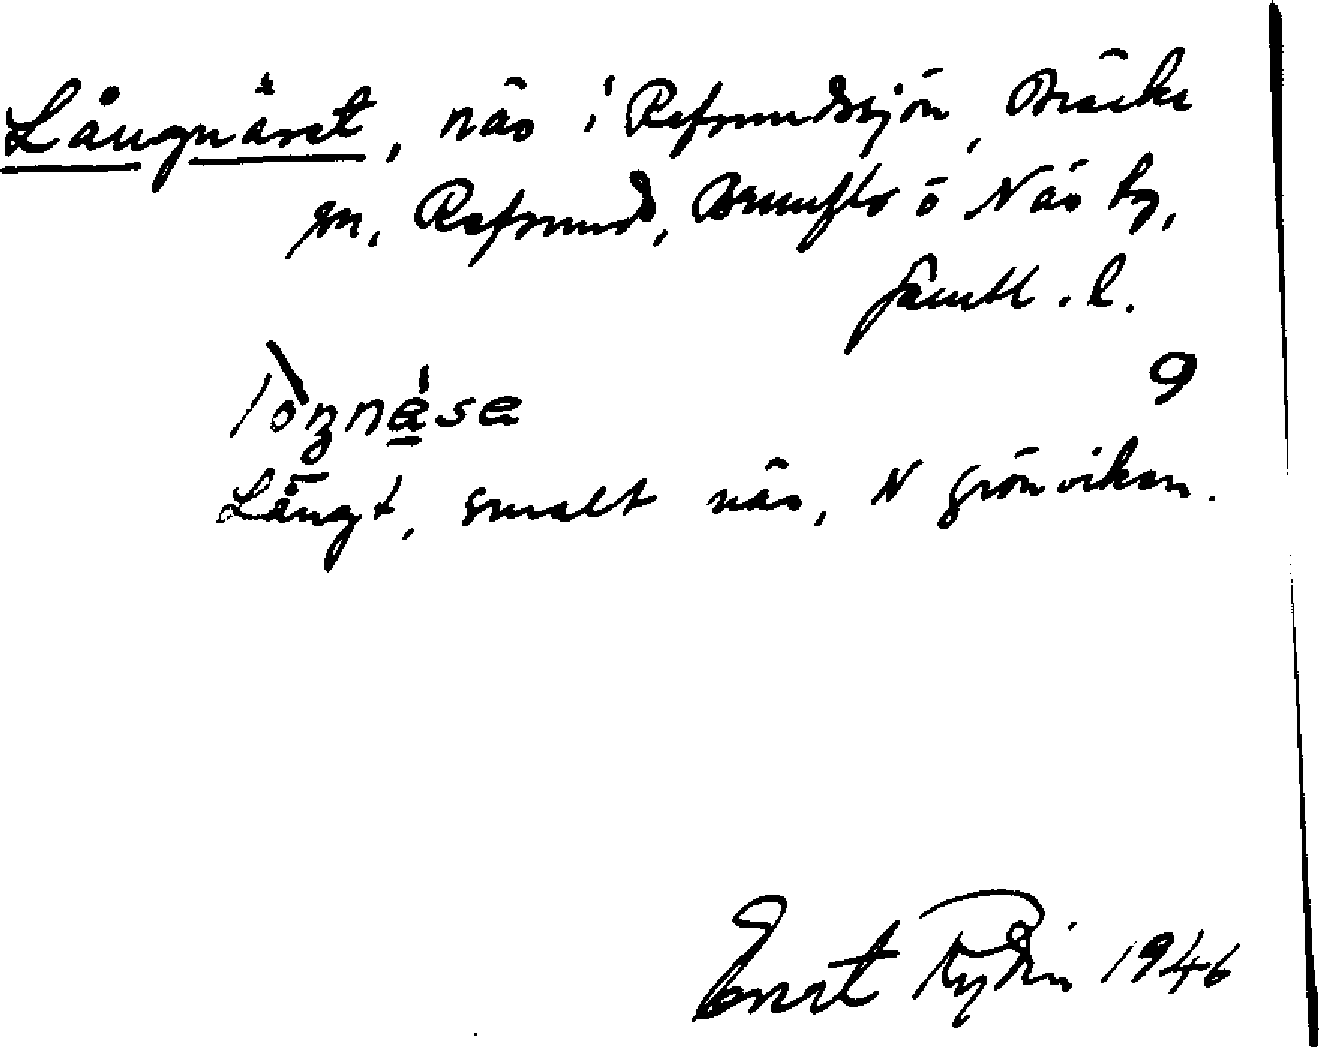 Långnäset, näs i Refsundssjön, Bräcke
sn, Refsunds, Brunflo o Näs tg,
Jämtl. l.
9
lòŋnésa
Långt, smalt näs, N Grönviken.
Ernst Rydin 1946